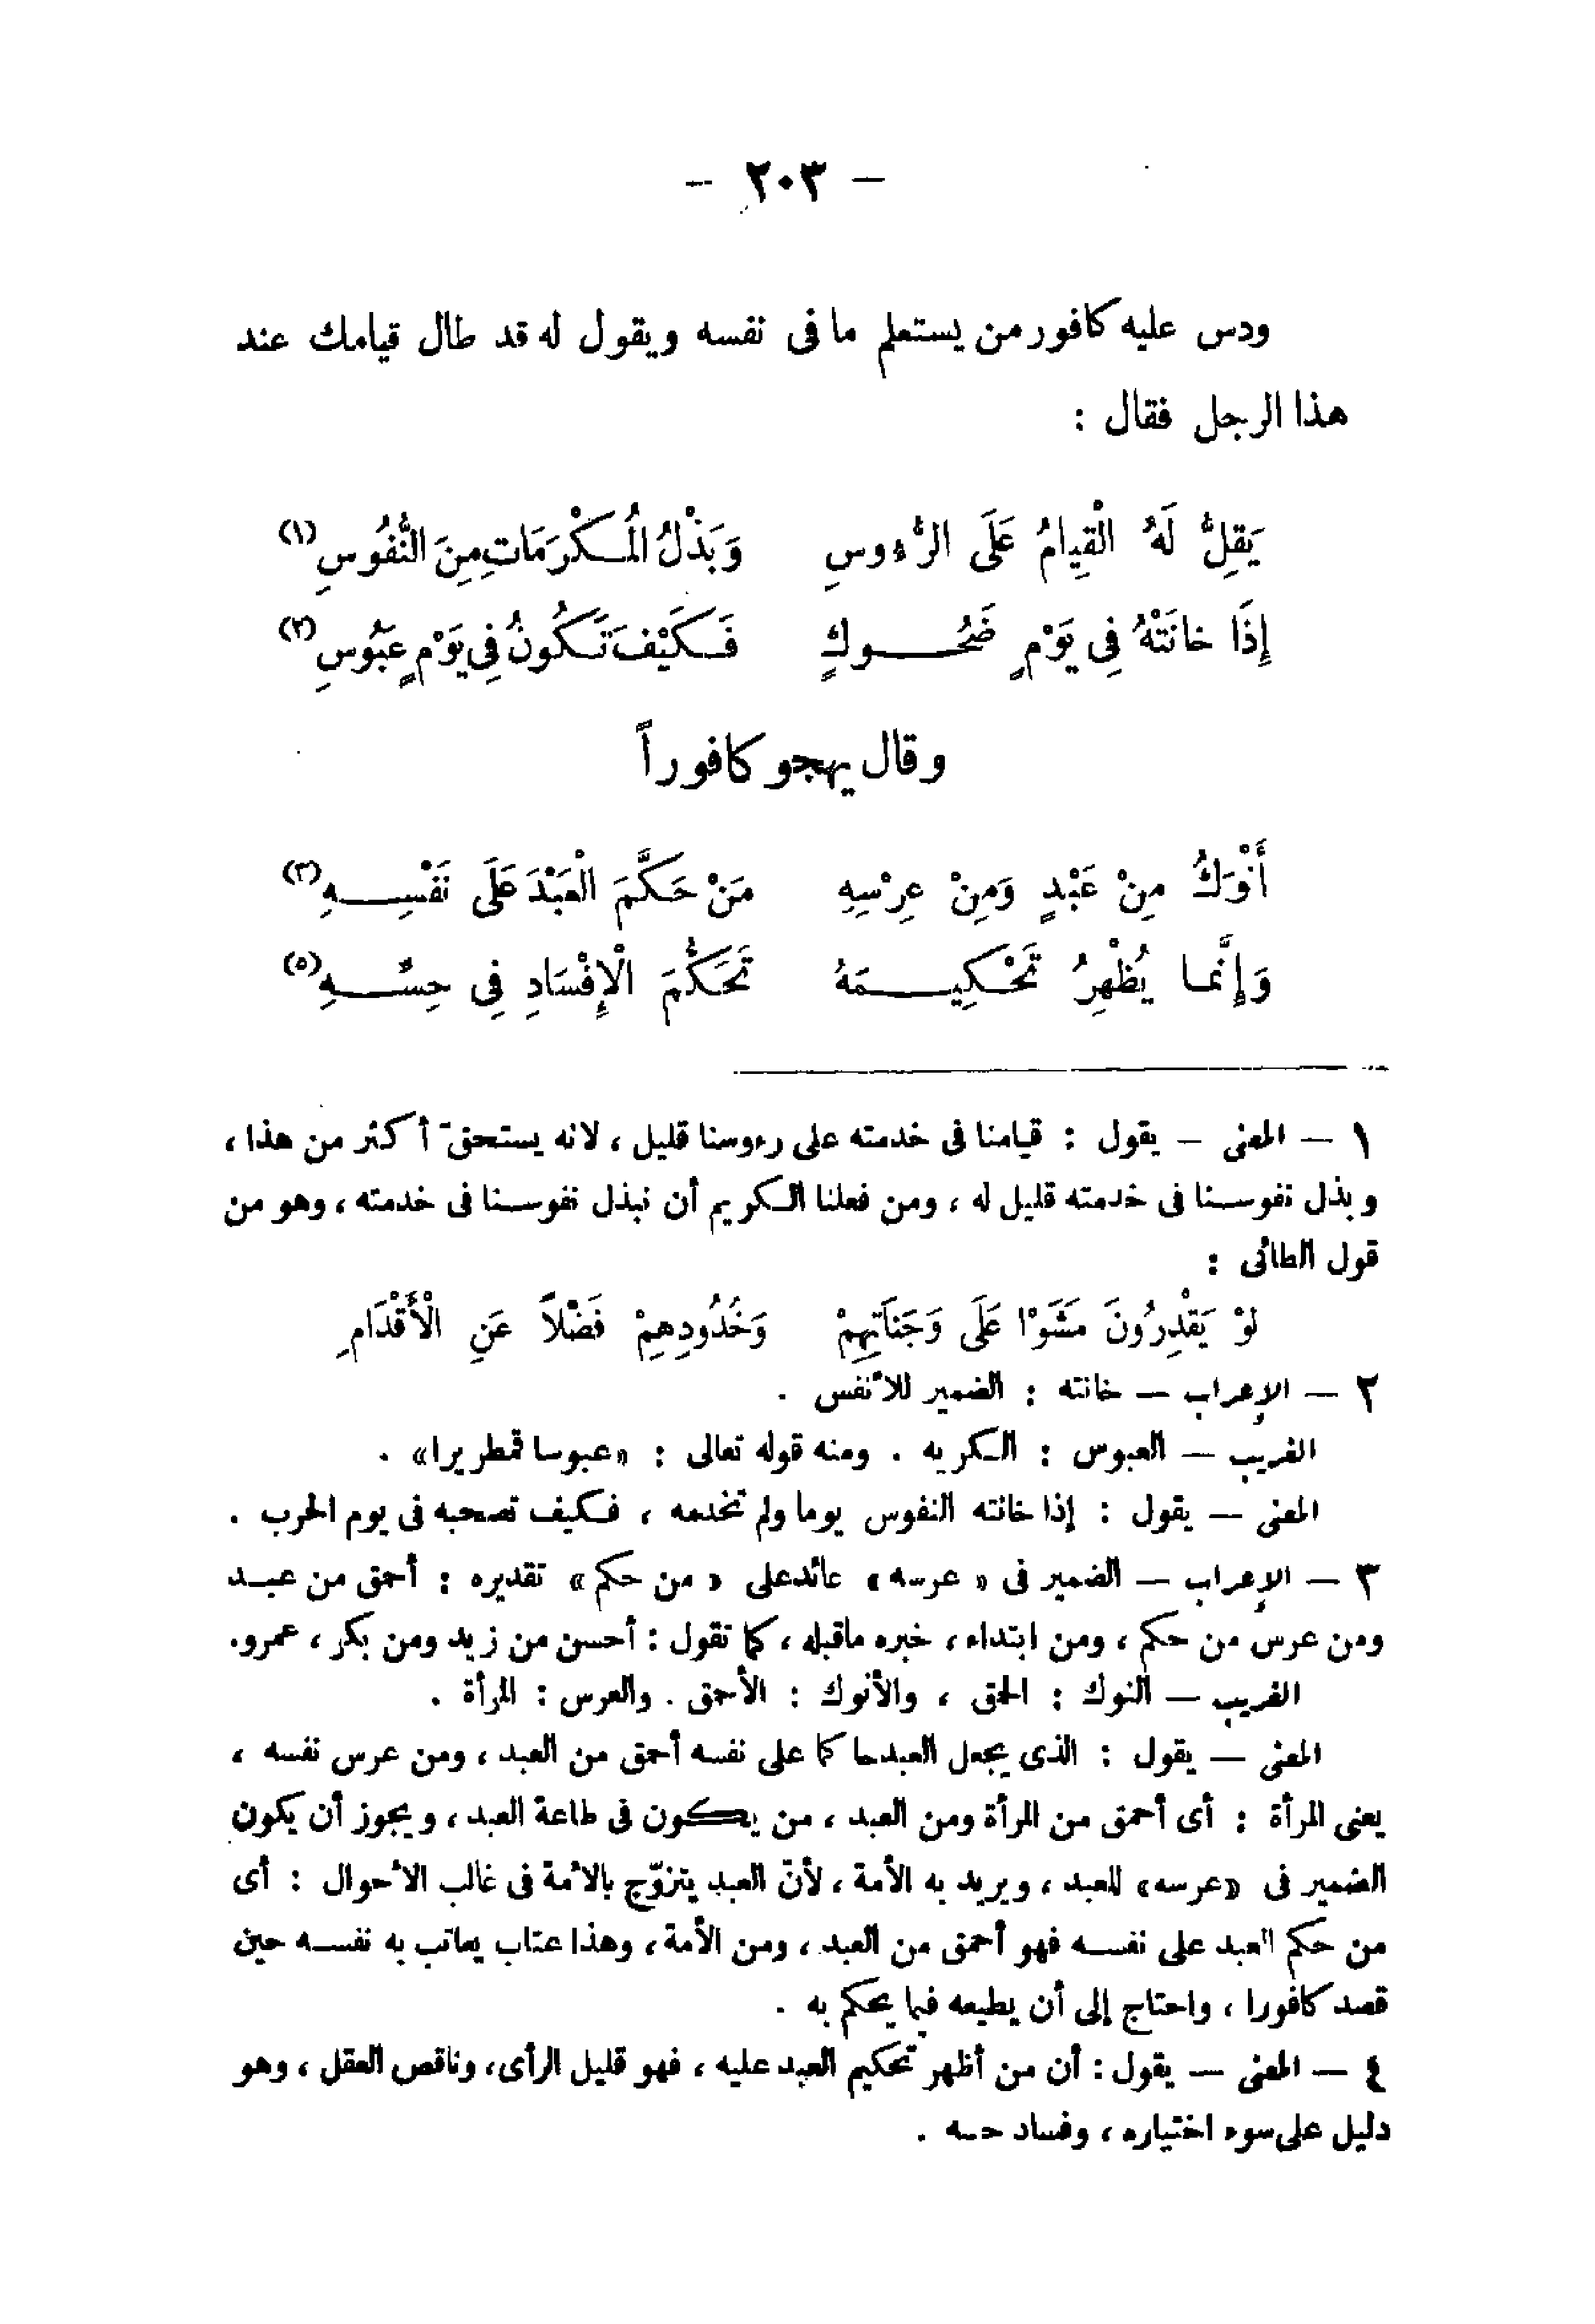 – ٢٠٣ –
ودس عليه كافور من يستعلم ما فى نفسه ويقول له قد طال قيامك عند
هذا الرجل فقال :
يَقِلُّ لَهُ الْقِيامُ عَلَى الرُّءوسِ وَبَذْلُ الْمَكْرَمَاتِ مِنَ النُّفُوسِ (١)
إِذَا خانَتْهُ فِى يَوْمٍ ضَحُوكٍ فَكَيْفَ تَكُونُ فِى يَوْمٍ عَبُوسِ (٢)
وقال يهجو كافوراً
أَنْوَكُ مِنْ عَبْدٍ وَمِنْ عِرْسِهِ مَنْ حَكَّمَ الْعَبْدَ عَلَى نَفْسِهِ (٣)
وَإِنَّمَا يُظْهِرُ تَحْكِيمَهُ تَحَكُّمَ الْإِفْسَادِ فِى حِسِّهِ (٥)
١ – المعنى – يقول : قيامنا فى خدمته على رءوسنا قليل ، لانه يستحق أكثر من هذا ،
وبذل نفوسنا فى خدمته قليل له ، ومن فعلنا الكريم أن نبذل نفوسنا فى خدمته ، وهو من
قول الطائى :
لَوْ يَقْدِرُونَ مَشَوْا عَلَى وَجَنَاتِهِمْ وَخُدُودِهِمْ فَضْلاً عَنِ الْأَقْدَامِ
٢ – الإعراب – خانته : الضمير للأنفس .
الغريب – العبوس : الكريه . ومنه قوله تعالى : «عبوسا قمطريرا» .
المعنى – يقول : إذا خانته النفوس يوما ولم تخدمه ، فكيف تصحبه فى يوم الحرب .
٣ – الإعراب – الضمير فى « عرسه » عائد على « من حكم » تقديره : أحمق من عبد
ومن عرس من حكم ، ومن ابتداء ، خبره ماقبله ، كما تقول : أحسن من زيد ومن بكر ، عمرو.
الغريب – النوك : الحمق ، والأنوك : الأحمق . والعرس : المرأة .
المعنى – يقول : الذى يجعل العبد حاكما على نفسه أحمق من العبد ، ومن عرس نفسه ،
يعنى المرأة : أى أحمق من المرأة ومن العبد ، من يكون فى طاعة العبد ، ويجوز أن يكون
الضمير فى «عرسه» للعبد ، ويريد به الأمة ، لأنّ العبد يتزوّج بالأمة فى غالب الأحوال : أى
من حكم العبد على نفسه فهو أحمق من العبد ، ومن الأمة ، وهذا عتاب يعاتب به نفسه حين
قصد كافورا ، واحتاج إلى أن يطيعه فيما يحكم به .
٤ – المعنى – يقول : أن من أظهر تحكيم العبد عليه ، فهو قليل الرأى، وناقص العقل ، وهو
دليل على سوء اختياره ، وفساد حسه .